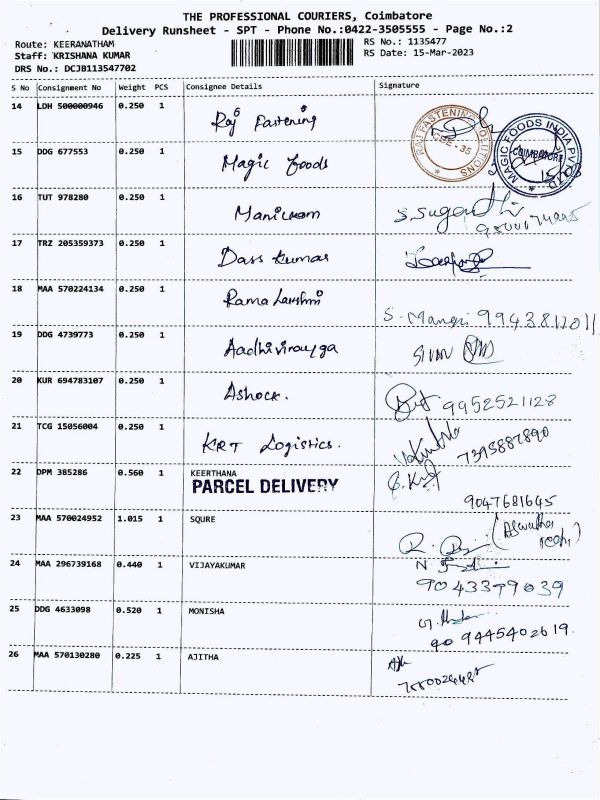 THE PROFESSIONAL COURIERS, Coimbatore
Delivery Runsheet - SPT - Phone No.:0422-3505555 - Page No.:2
Route: KEERANATHAM
RS No.: 1135477
Staff: KRISHANA KUMAR
RS Date: 15-Mar-2023
DRS No.: DCJB113547702
S No Consignment No Weight PCS Consignee Details Signature
14 LDH 500000946 0.250 1 Raj Fastening
RAJ FASTENING SOLUTIONS
MAGIC FOODS INDIA PVT LTD
COIMBATORE
15 DDG 677553 0.250 1 Magic foods
16 TUT 978280 0.250 1 Manickam S. Sugandhi
17 TRZ 205359373 0.250 1 Dass Kumar
18 MAA 570224134 0.250 1 Rama Lakshmi
S. Mangai
19 DDG 4739773 0.250 1
20 KUR 694783107 0.250 1 Ashock. 9952521128
21 TCG 15056004 0.250 1 KRT Logistics. 7395887890
22 DPM 385286 0.560 1 KEERTHANA
PARCEL DELIVERY
9047681645
23 MAA 570024952 1.015 1 SQURE
24 MAA 296739168 0.440 1 VIJAYAKUMAR
9043379039
25 DDG 4633098 0.520 1 MONISHA
9445402619
26 MAA 570130280 0.225 1 AJITHA